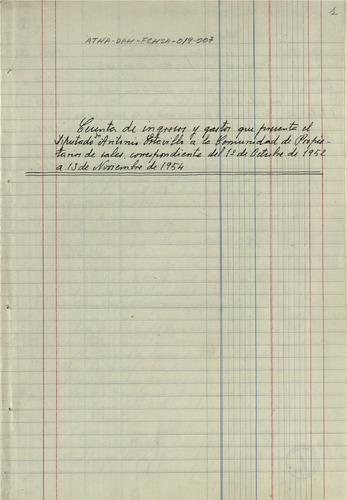 1
ATHA-DAH-FCHSA-019-007
Cuenta de ingresos y gastos que presenta el
Diputado Antonio a la Comunidad de Propie-
tarios de sales, correspondiente del 12 de Octubre de 1952
a 13 de Noviembre de 1954